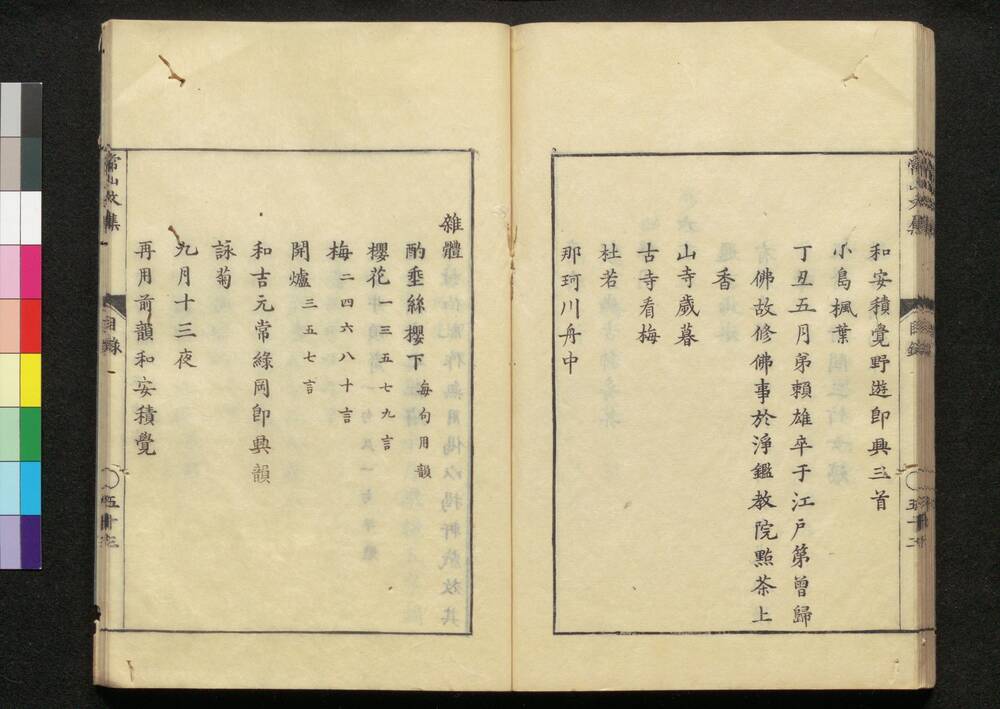 和安積覺野遊即興三首
小島楓葉
丁丑五月弟賴雄卒于江戶第曾歸
佛故修佛事於淨鑑教院點茶上
香
山寺歲暮
古寺看梅
杜若
那珂川舟中
常山文集
目錄
五十二
雜體
酌垂絲櫻下每句用韻
櫻花一三五七九言
梅二四六八十言
開爐三五七言
和吉元常綠岡即興韻
詠菊
九月十三夜
再用前韻和安積覺
常山文集
目錄
五十三